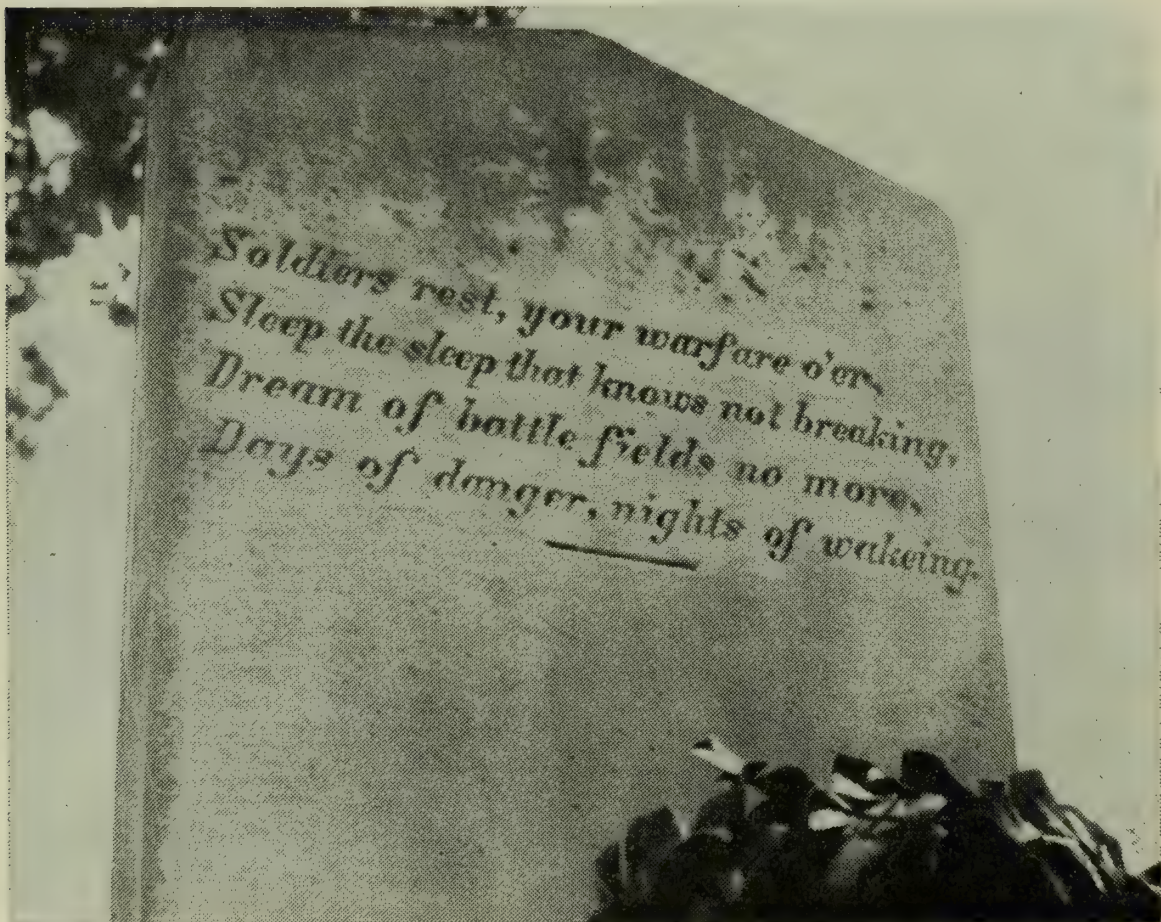 Soldiers rest, your warfare o'er,
Sleep the sleep that knows not breaking,
Dream of battle fields no more,
Days of danger, nights of wakeing.